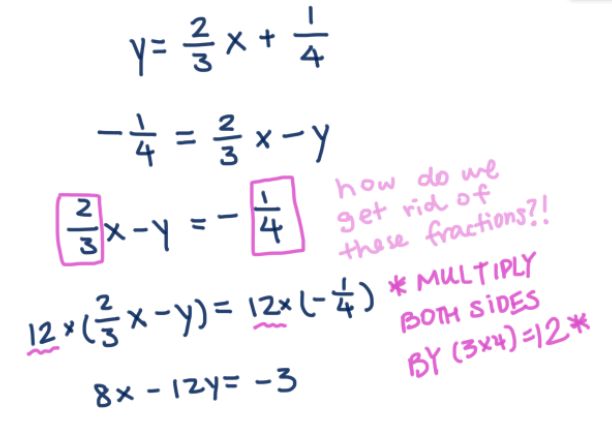 y = 2/3 x + 1/4
- 1/4 = 2/3 x - y
2/3 x - y = - 1/4
how do we
get rid of
these fractions?!
12 × (2/3 x - y) = 12 × (- 1/4)
* MULTIPLY
BOTH SIDES
BY (3×4) = 12 *
8x - 12y = -3